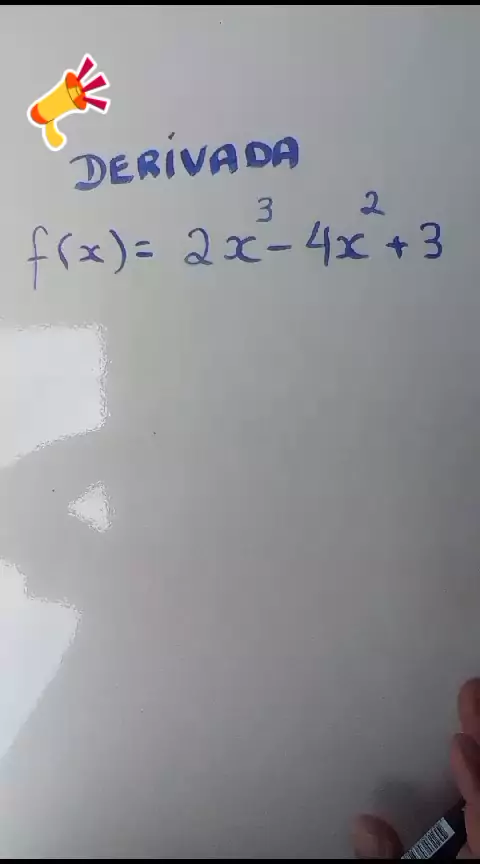 DERIVADA
f(x) = 2x³ - 4x² + 3